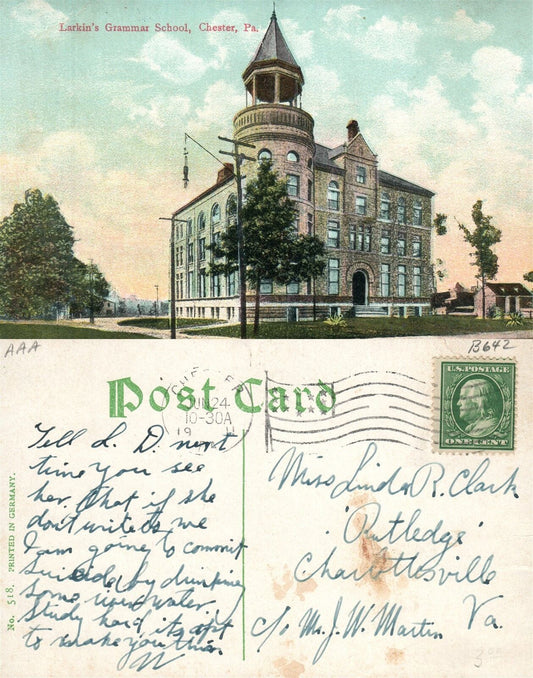 Larkin's Grammar School, Chester, Pa.
AAA
B642
Post Card
CHESTER, PA.
JUN 24
10-30A
19
U.S. POSTAGE
ONE CENT
No. 518. PRINTED IN GERMANY.
Tell L. D. next
time you see
her. That if she
don't write to we
I am going to commit
suicide by drinking
some river water.
Study hard its apt
to make you thin.
W
Miss Linda R. Clark
"Rutledge"
Charlottesville
Va.
c/o Mr. J. W. Martin